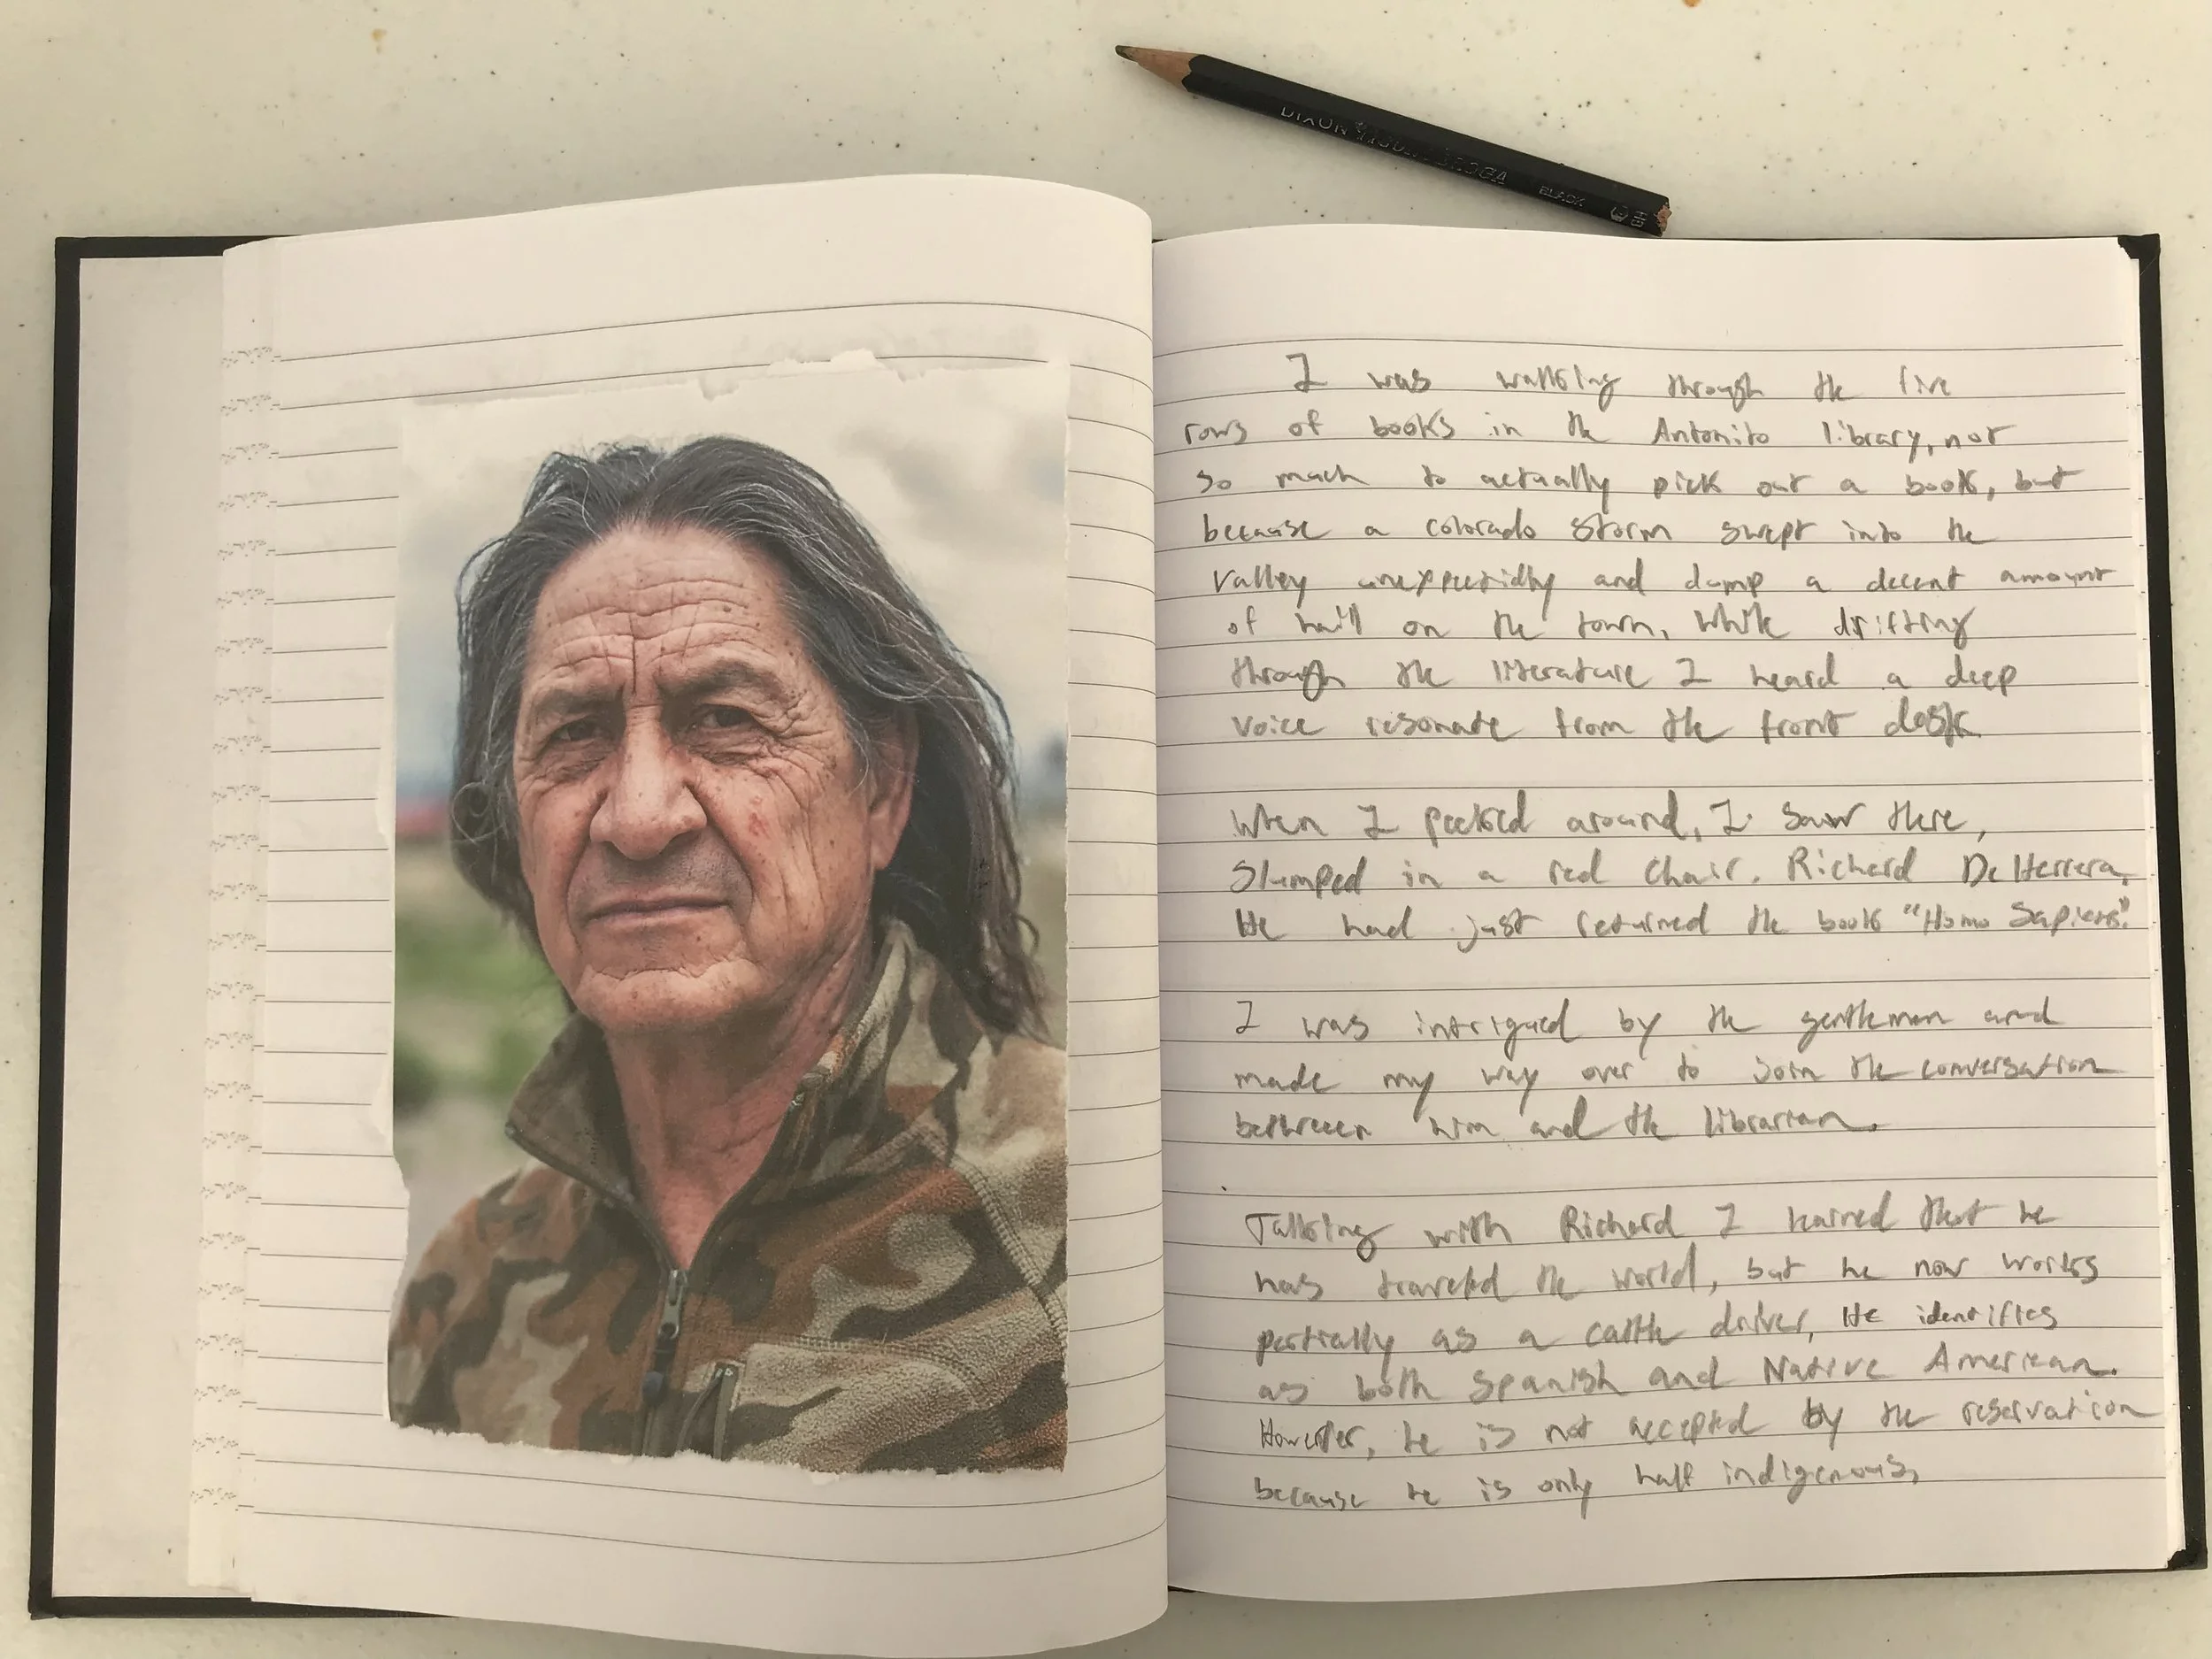 DIXON BLACK HB
I was walking through the five
rows of books in the Antonito library, not
so much to actually pick out a book, but
because a colorado storm swept into the
valley unexpectidly and dump a decent amount
of hail on the town. While drifting
through the literature I heard a deep
voice resonate from the front desk
When I peeked around, I saw there,
Slumped in a red chair, Richard DeHerrera.
He had just returned the book "Homo Sapiens".
I was intrigued by the gentleman and
made my way over to join the conversation
between him and the librarian.
Talking with Richard I learned that he
has traveled the world, but he now works
partially as a cattle driver. He identifies
as both Spanish and Native American.
However, he is not accepted by the reservation
because he is only half indigenous.